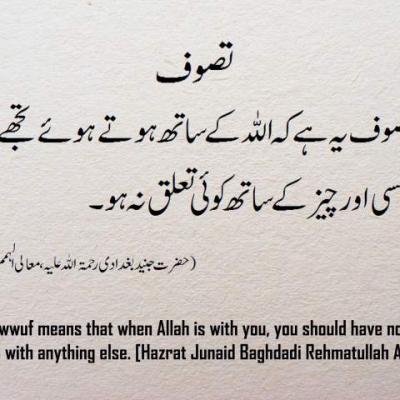 تصوف
صوف یہ ہے کہ اللہ کے ساتھ ہوتے ہوئے تجھے
سی اور چیز کے ساتھ کوئی تعلق نہ ہو۔
(حضرت جنید بغدادی رحمۃ اللہ علیہ، معالی الہمم
wwuf means that when Allah is with you, you should have no
with anything else. [Hazrat Junaid Baghdadi Rehmatullah A